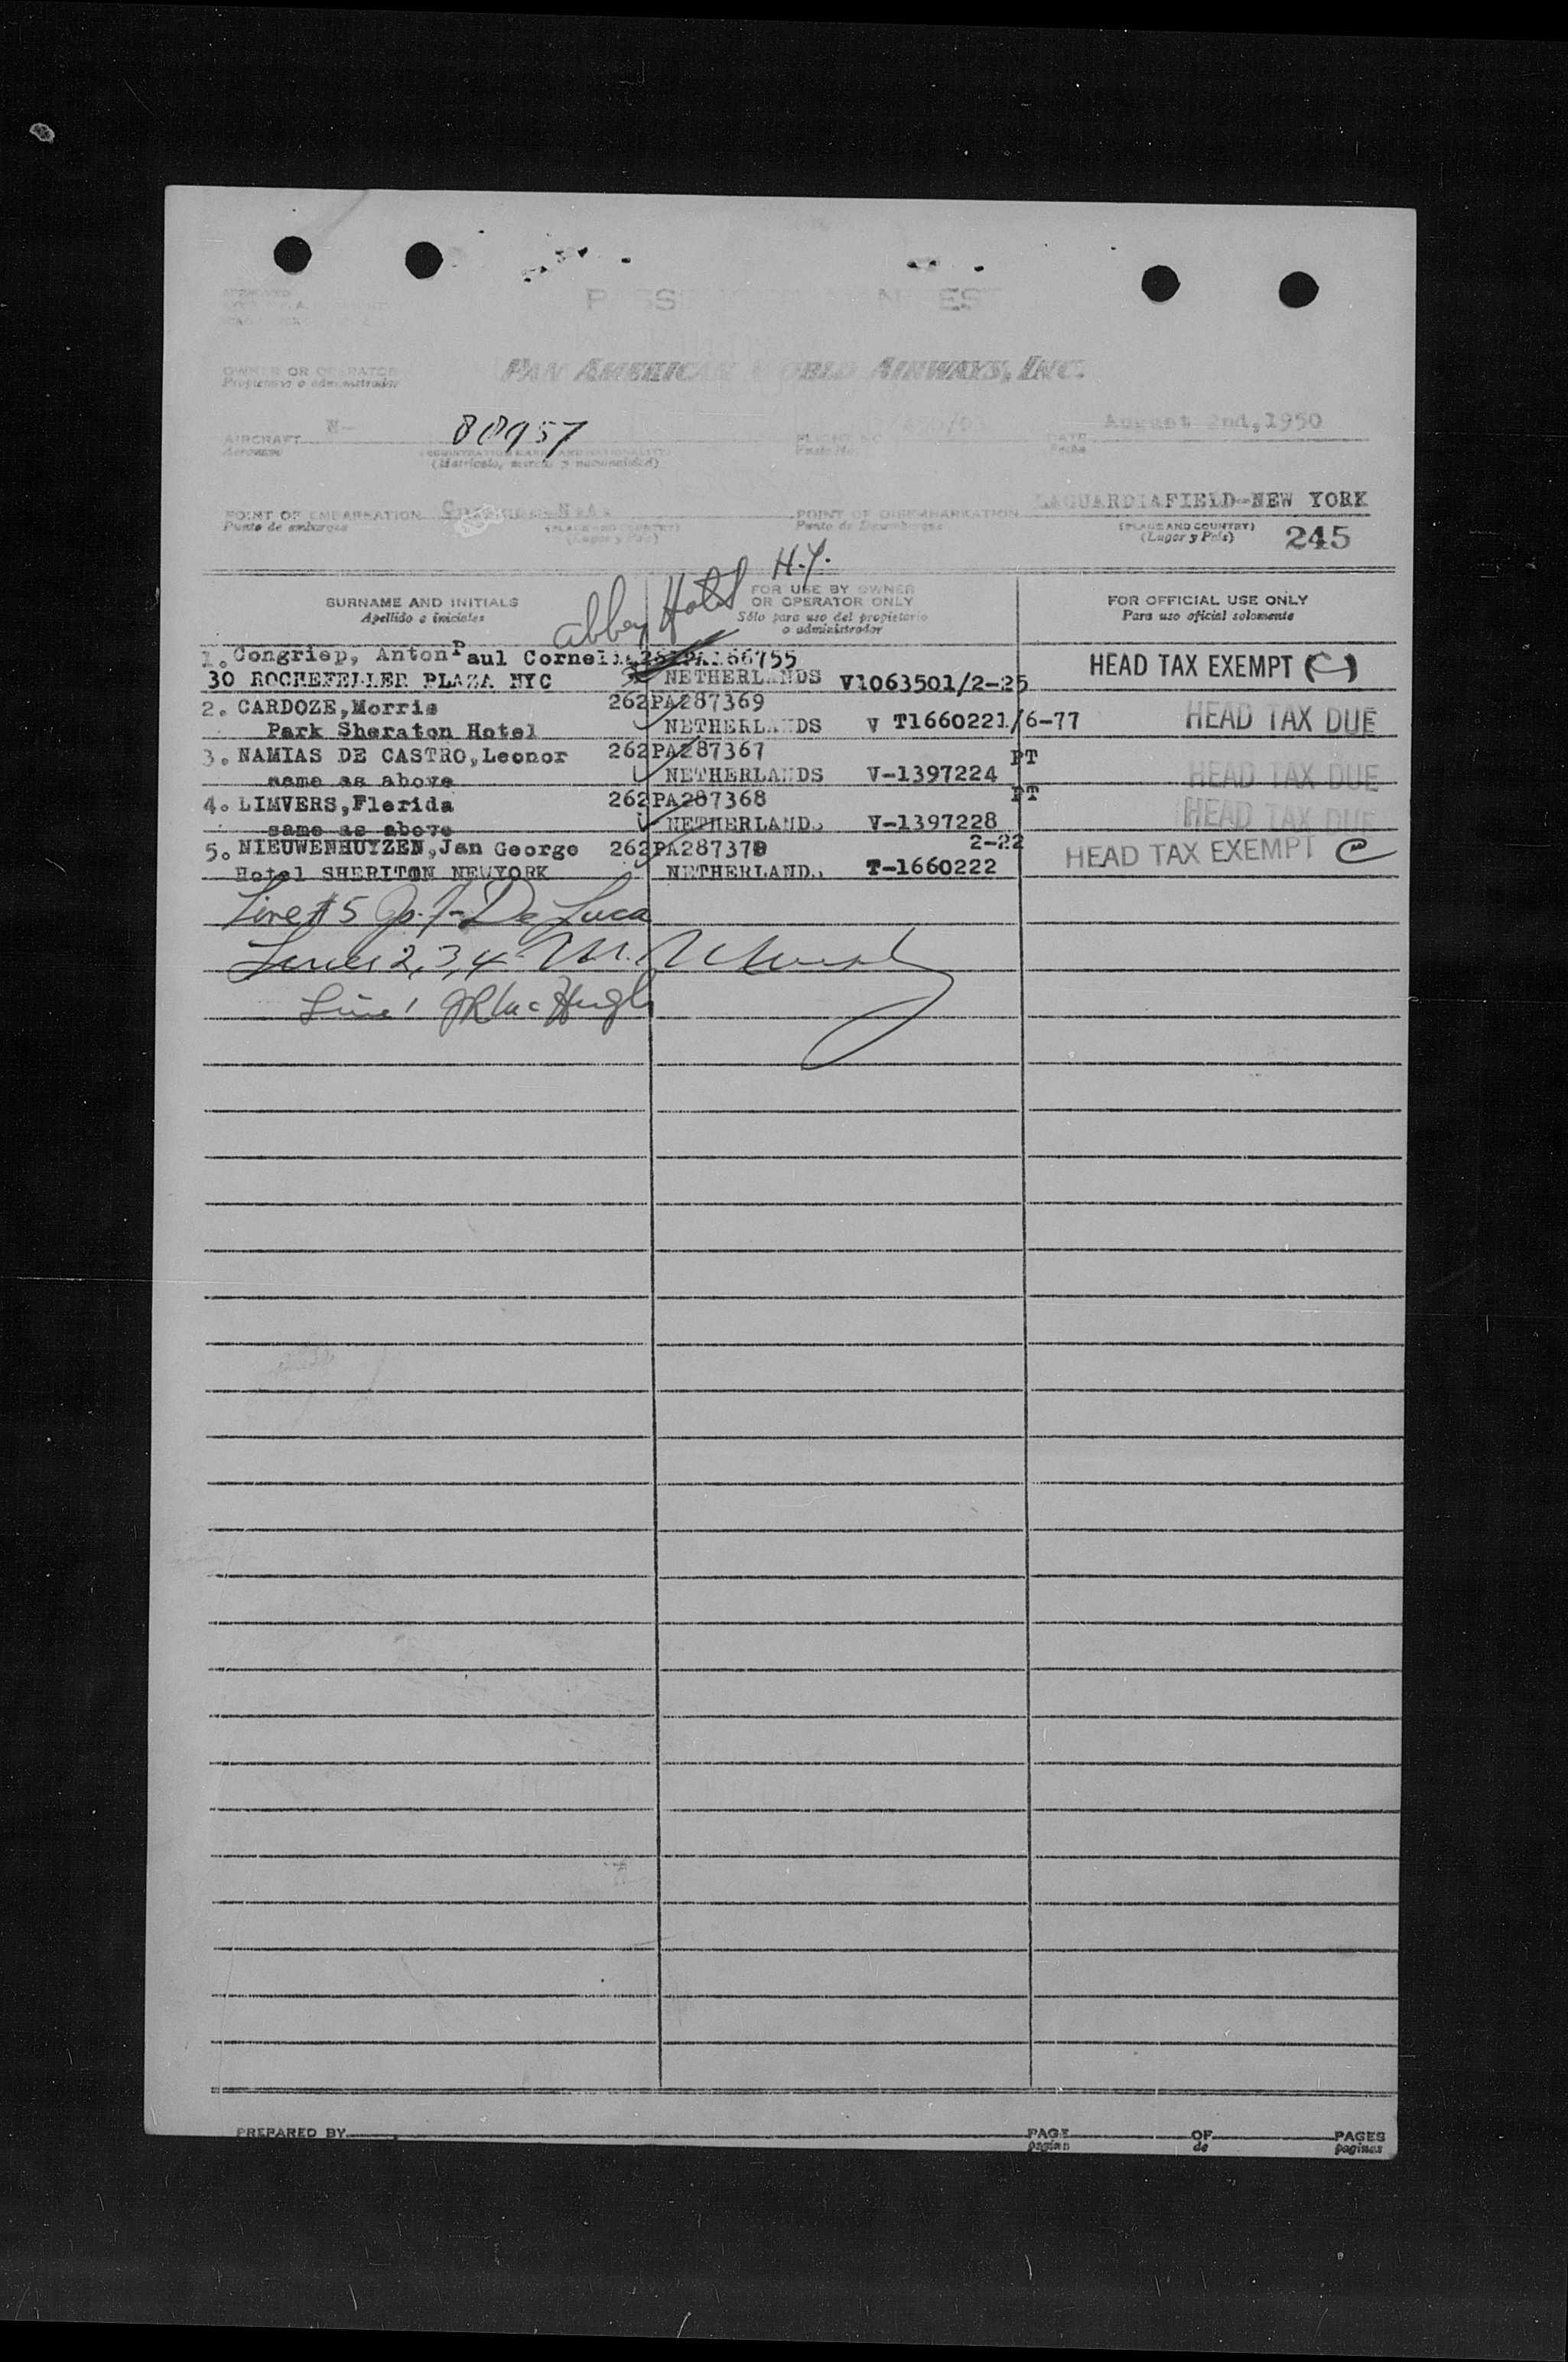 PASSENGER MANIFEST
OWNER OR OPERATOR
Propietario o administrador
PAN AMERICAN WORLD AIRWAYS, INC.
AIRCRAFT N- 88957 FLIGHT NO. DATE August 2nd, 1950
Aeronave (REGISTRATION MARKS AND NATIONALITY) Fecha
(Matricula, marcas y nacionalidad)
POINT OF EMBARKATION Curacao-N.A. POINT OF DISEMBARKATION LAGUARDIAFIELD-NEW YORK
Punto de embarque (PLACE AND COUNTRY) Punto de Desembarque (PLACE AND COUNTRY)
(Lugar y País) (Lugar y País) 245
Abbey Hotel N.Y.
SURNAME AND INITIALS FOR USE BY OWNER OR OPERATOR ONLY FOR OFFICIAL USE ONLY
Apellido e iniciales Sólo para uso del propietario o administrador Para uso oficial solomente
1. Congriep, Anton Paul Cornelis 262PA166755 HEAD TAX EXEMPT (C)
30 ROCHEFELLER PLAZA NYC NETHERLANDS V1063501/2-25
2. CARDOZE,Morris 262PA287369
Park Sheraton Hotel NETHERLANDS V T1660221/6-77 HEAD TAX DUE
3. NAMIAS DE CASTRO,Leonor 262PA287367 PT
same as above NETHERLANDS V-1397224 HEAD TAX DUE
4. LIMVERS,Flerida 262PA287368 PT
same as above NETHERLANDS V-1397228 HEAD TAX DUE
5. NIEUWENHUYZEN,Jan George 262PA28737 2-22 HEAD TAX EXEMPT C
Hotel SHERITON NEWYORK NETHERLANDS T-1660222
Line #5 De Luca
Lines 2,3,4 M.
Line 1 Mc Hugh
PREPARED BY PAGE OF PAGES
pagina de paginas